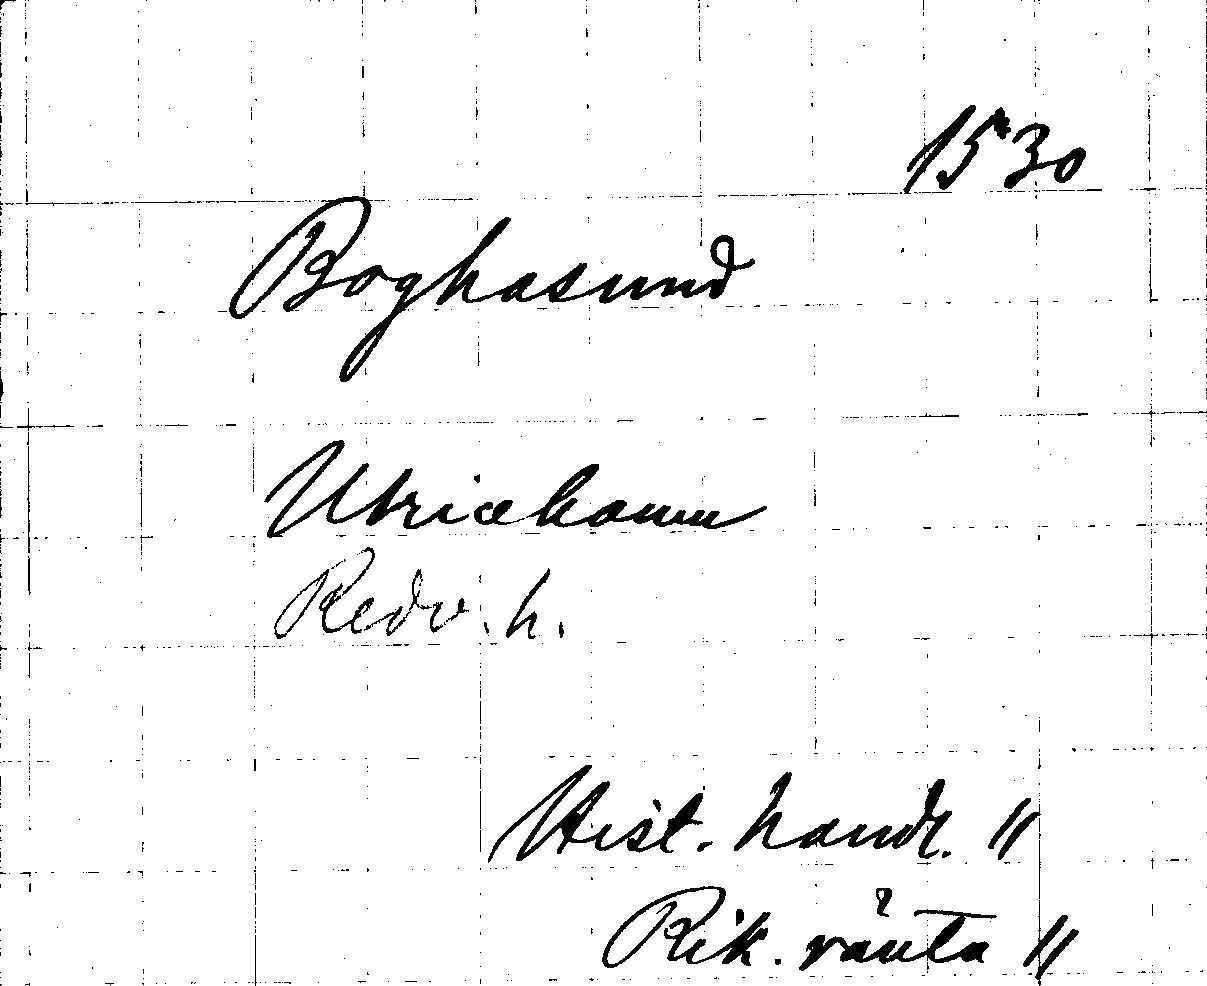 1530
Boghasund
Ulricehamn
Redv. h.
Hist. handl. 11
Rik. ränta 11